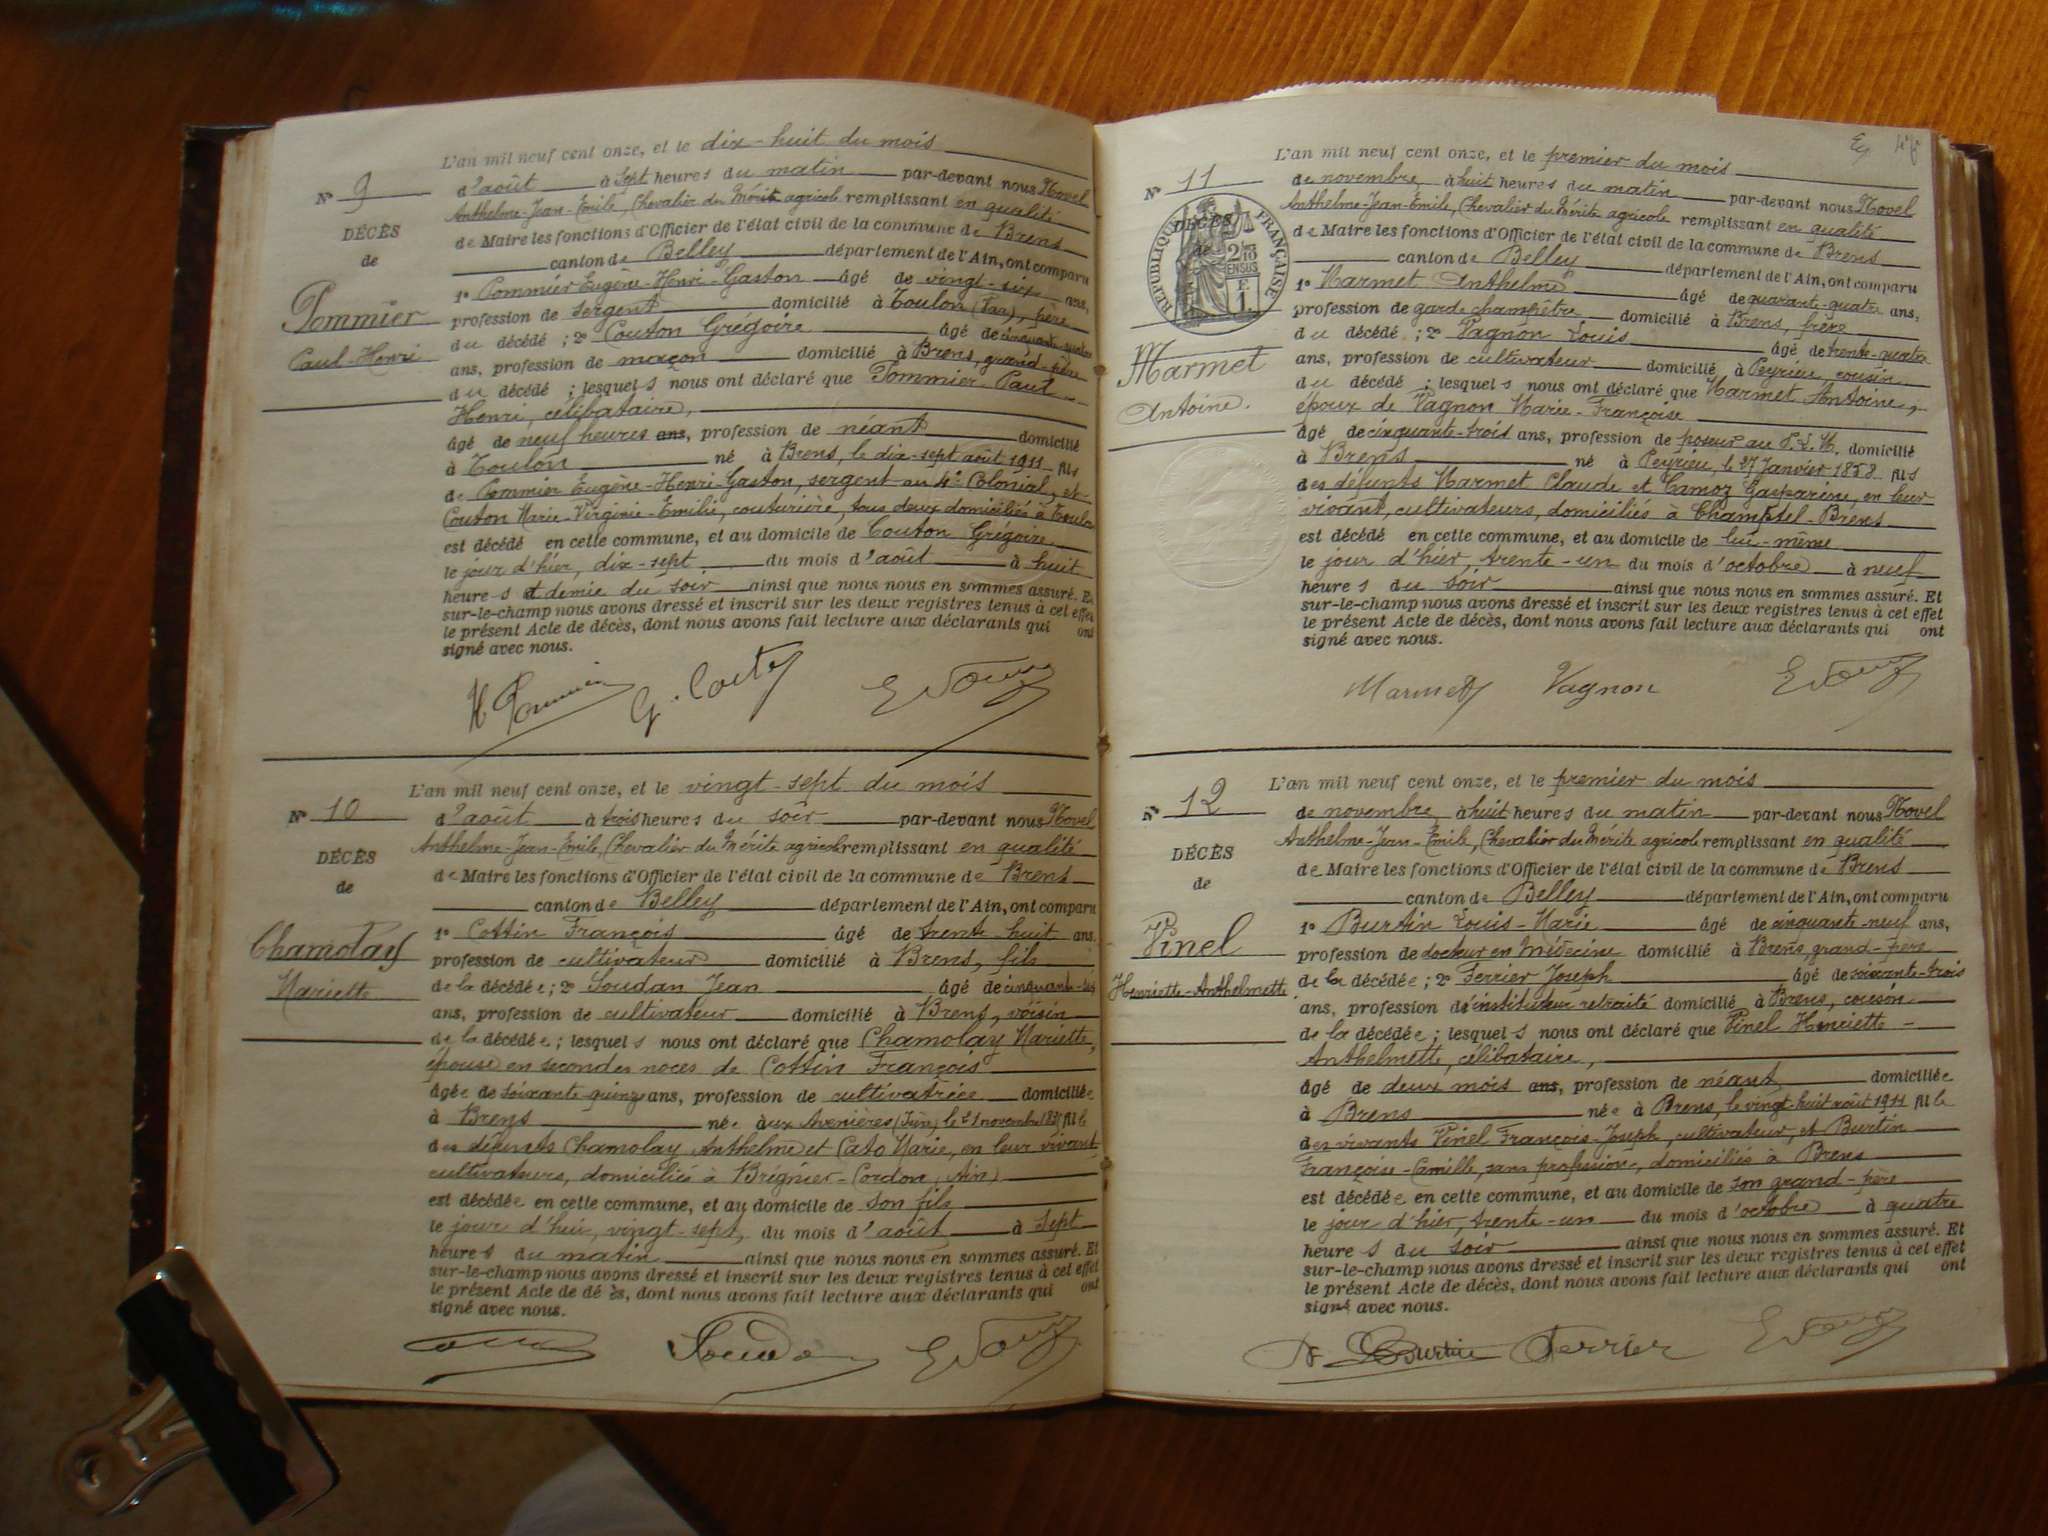 L'an mil neuf cent onze, et le dix-huit du mois
N° 9
d'août à sept heures du matin par-devant nous Novel
Anthelme-Jean-Emile, Chevalier du Mérite agricole remplissant en qualité
DÉCÈS
de Maire les fonctions d'Officier de l'état civil de la commune de Brens
de
canton de Belley département de l'Ain, ont comparu
1° Pommier Eugène-Henri-Gaston âgé de vingt-six ans,
Pommier
profession de sergent domicilié à Toulon (Var), père
du décédé ; 2° Couton Grégoire âgé de cinquante-quatre
Paul-Henri
ans, profession de maçon domicilié à Brens, grand-père
du décédé ; lesquels nous ont déclaré que Pommier Paul
Henri, célibataire,
âgé de neuf heures ans, profession de néant domicilié
à Toulon né à Brens, le dix-sept août 1911 fils
de Pommier Eugène-Henri-Gaston, sergent au 4e Colonial, et
Couton Marie-Virginie-Emilie, couturière, tous deux domiciliés à Toulon
est décédé en cette commune, et au domicile de Couton Grégoire
le jour d'hier, dix-sept du mois d'août à huit
heures et demie du soir ainsi que nous nous en sommes assuré. Et
sur-le-champ nous avons dressé et inscrit sur les deux registres tenus à cet effet
le présent Acte de décès, dont nous avons fait lecture aux déclarants qui ont
signé avec nous.
L'an mil neuf cent onze, et le vingt-sept du mois
N° 10
d'août à trois heures du soir par-devant nous Novel
Anthelme-Jean-Emile, Chevalier du Mérite agricole remplissant en qualité
DÉCÈS
de Maire les fonctions d'Officier de l'état civil de la commune de Brens
de
canton de Belley département de l'Ain, ont comparu
1° Cottin François âgé de trente huit ans,
Chamolay
profession de cultivateur domicilié à Brens, fils
Mariette
de la décédée ; 2° Soudan Jean âgé de
ans, profession de cultivateur domicilié à Brens, voisin
de la décédée ; lesquels nous ont déclaré que Chamolay Mariette,
épouse en secondes noces de Cottin François
âgée de soixante quinze ans, profession de cultivatrice domiciliée
à Brens née aux Avenières (Isère) le novembre fille
des défunts Chamolay Anthelme et Cato Marie, en leur vivant
cultivateurs, domiciliés à Brégnier-Cordon (Ain)
est décédée en cette commune, et au domicile de son fils
le jour d'hui, vingt-sept, du mois d'août à sept
heures du matin ainsi que nous nous en sommes assuré. Et
sur-le-champ nous avons dressé et inscrit sur les deux registres tenus à cet effet
le présent Acte de décès, dont nous avons fait lecture aux déclarants qui ont
signé avec nous.
L'an mil neuf cent onze, et le premier du mois
N° 11
de novembre à huit heures du matin par-devant nous Novel
Anthelme-Jean-Emile, Chevalier du Mérite agricole remplissant en qualité
DÉCÈS
RÉPUBLIQUE FRANÇAISE
de Maire les fonctions d'Officier de l'état civil de la commune de Brens
de
canton de Belley département de l'Ain, ont comparu
1° Marmet Anthelme âgé de quarante-quatre ans,
profession de garde champêtre domicilié à Brens, frère
du décédé ; 2° Vagnon Louis âgé de trente-quatre
Marmet
ans, profession de cultivateur domicilié à Peyrieu, cousin
du décédé ; lesquels nous ont déclaré que Marmet Antoine,
Antoine.
époux de Vagnon Marie-Françoise
âgé de cinquante-trois ans, profession de poseur au P.L.M. domicilié
à Brens né à Peyrieu, le 27 Janvier 1858 fils
des défunts Marmet Claude et Camoz Gasparine, en leur
vivant, cultivateurs, domiciliés à Champtel-Brens
est décédé en cette commune, et au domicile de lui-même
le jour d'hier, trente-un du mois d'octobre à neuf
heures du soir ainsi que nous nous en sommes assuré. Et
sur-le-champ nous avons dressé et inscrit sur les deux registres tenus à cet effet
le présent Acte de décès, dont nous avons fait lecture aux déclarants qui ont
signé avec nous.
Marmet Vagnon
L'an mil neuf cent onze, et le premier du mois
N° 12
de novembre à huit heures du matin par-devant nous Novel
Anthelme-Jean-Emile, Chevalier du Mérite agricole remplissant en qualité
DÉCÈS
de Maire les fonctions d'Officier de l'état civil de la commune de Brens
de
canton de Belley département de l'Ain, ont comparu
1° Burtin Louis-Marie âgé de cinquante-neuf ans,
Pinel
profession de docteur en Médecine domicilié à Brens, grand-père
Henriette-Anthelmette
de la décédée ; 2° Ferrier Joseph âgé de soixante-trois
ans, profession d'instituteur retraité domicilié à Brens, cousin
de la décédée ; lesquels nous ont déclaré que Pinel Henriette-
Anthelmette, célibataire,
âgé de deux mois ans, profession de néant domiciliée
à Brens née à Brens, le vingt-huit août 1911 fille
des vivants Pinel François-Joseph, cultivateur, et Burtin
Françoise-Camille, sans profession, domiciliés à Brens
est décédée en cette commune, et au domicile de son grand-père
le jour d'hier, trente-un du mois d'octobre à quatre
heures du soir ainsi que nous nous en sommes assuré. Et
sur-le-champ nous avons dressé et inscrit sur les deux registres tenus à cet effet
le présent Acte de décès, dont nous avons fait lecture aux déclarants qui ont
signé avec nous.
Dr Burtin Ferrier